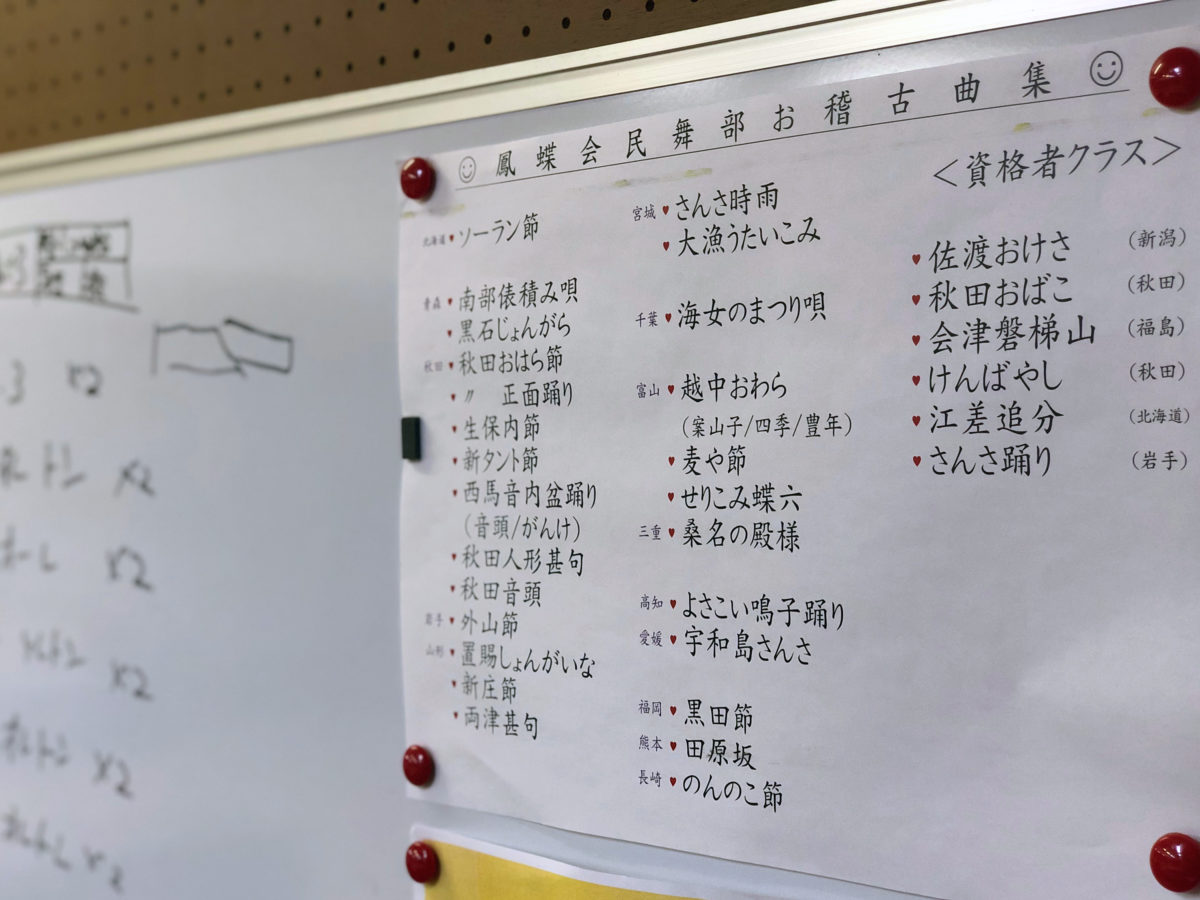 ☺ 鳳蝶会民舞部お稽古曲集 ☺
北海道 ♥ ソーラン節
青森 ♥ 南部俵積み唄
♥ 黒石じょんがら
秋田 ♥ 秋田おはら節
♥ 〃 正面踊り
♥ 生保内節
♥ 新タント節
♥ 西馬音内盆踊り
(音頭/がんけ)
♥ 秋田人形甚句
♥ 秋田音頭
岩手 ♥ 外山節
山形 ♥ 置賜しょんがいな
♥ 新庄節
♥ 両津甚句
宮城 ♥ さんさ時雨
♥ 大漁うたいこみ
千葉 ♥ 海女のまつり唄
富山 ♥ 越中おわら
(案山子/四季/豊年)
♥ 麦や節
♥ せりこみ蝶六
三重 ♥ 桑名の殿様
高知 ♥ よさこい鳴子踊り
愛媛 ♥ 宇和島さんさ
福岡 ♥ 黒田節
熊本 ♥ 田原坂
長崎 ♥ のんのこ節
＜資格者クラス＞
♥ 佐渡おけさ (新潟)
♥ 秋田おばこ (秋田)
♥ 会津磐梯山 (福島)
♥ けんばやし (秋田)
♥ 江差追分 (北海道)
♥ さんさ踊り (岩手)